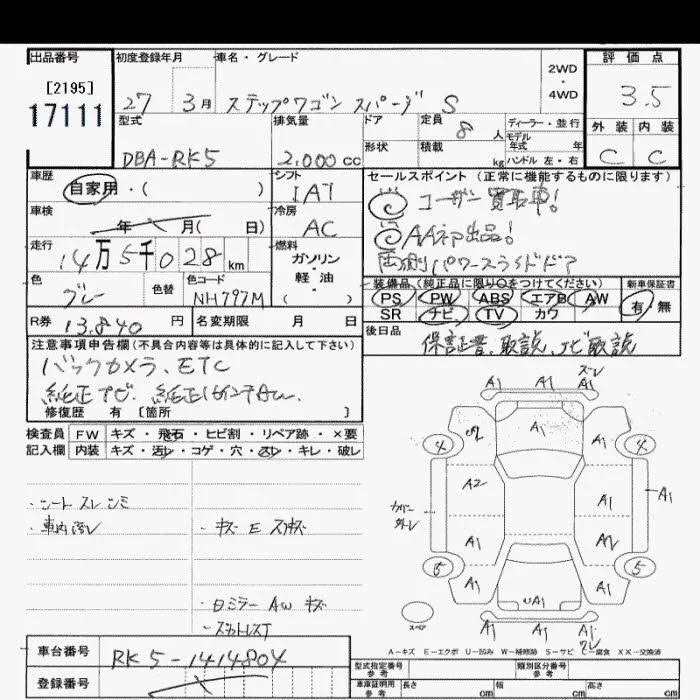 出品番号 初度登録年月 車名・グレード 2WD・4WD 評価点
[2195]
17111
27 3月 ステップワゴン スパーダ S 3.5
型式 排気量 ドア 定員 8 人 ディーラー・並行 外装 内装
形状 積載 kg モデル年式 年
ハンドル 左・右
DBA-RK5 2,000 cc C C
車歴 シフト セールスポイント (正常に機能するものに限ります)
自家用・( ) IAT ユーザー買取車!
車検 冷房
年 月( 日) AC AA初出品!
走行 燃料
14万5千028km ガソリン・軽油・( ) 両側パワースライドドア
色 色替 色コード 装備品 (純正品に限り○をつけてください) 新車保証書
グレー NH797M PS PW ABS エアB AW 有・無
SR ナビ TV カワ
R券 13,840 円 名変期限 月 日 後日品
保証書、取説、ナビ取説
注意事項申告欄(不具合内容等は具体的に記入して下さい)
バックカメラ、ETC
純正ナビ、純正16インチAW、
修復歴 有 [箇所 ]
検査員 FW キズ・飛石・ヒビ割・リペア跡・×要
記入欄 内装 キズ・汚レ・コゲ・穴・スレ・キレ・破レ
・シートスレ シミ
・車内汚レ ・キズ E スリキズ
・日ミラー AW キズ
ズレ
A1 A1 A1
A1
A1
4 4
A2
A1
A1
カバー外レ
A1
A1
5 5
A1 A1
A1
スペア
A1 A1 A1
A-キズ E-エクボ U-凹み W-補修跡 S-サビ C-腐食 XX-交換済
車台番号 RK5-1414804
登録番号
型式指定番号 参考 類別区分番号 参考
車庫証明用 参考 長さ cm 幅 cm 高さ cm